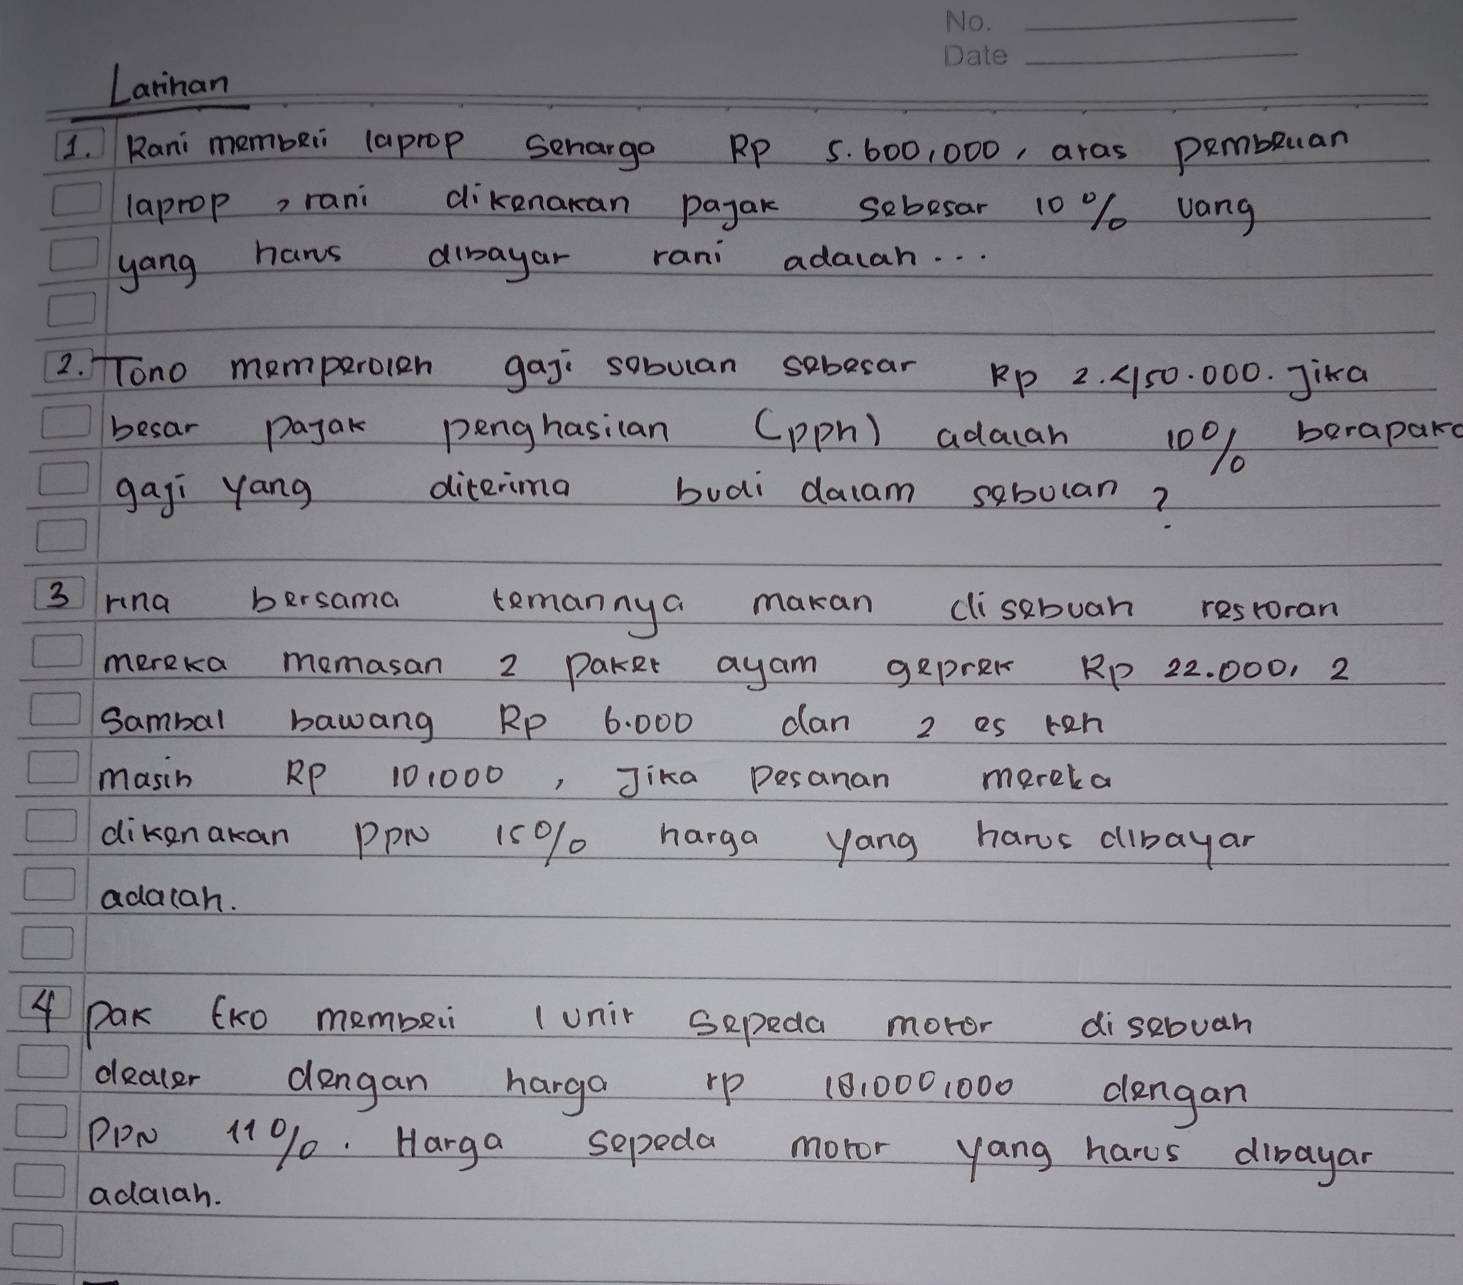 No.
Date
Latihan
1. Rani membeli laptop seharga Rp 5.600,000, atas pembelian
laptop, rani dikenakan pajak sebesar 10% uang
yang harus dibayar rani adalah...
2. Tono memperoleh gaji sebulan sebesar Rp 2.450.000. Jika
besar pajak penghasilan (pph) adalah 10% beraparo
gaji yang diterima budi dalam sebulan?
3 rina bersama temannya makan disebuah restoran
mereka memasan 2 paket ayam geprek Rp 22.000, 2
Sambal bawang Rp 6.000 dan 2 es teh
masih Rp 10,000, Jika pesanan mereka
dikenakan PPN 15% harga yang harus dibayar
adalah.
4 Pak Eko membeli 1 unit sepeda motor disebuah
dealer dengan harga rp 18,000,000 dengan
PPN 11%. Harga sepeda motor yang harus dibayar
adalah.